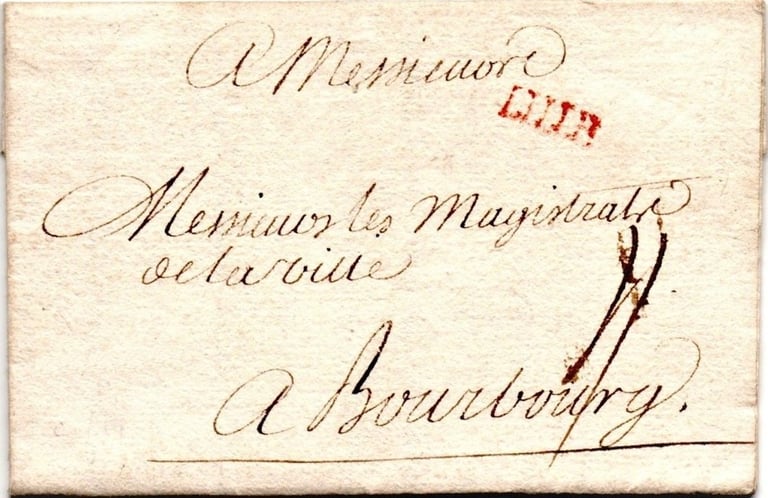 A Messieurs
LILLE
Messieurs les Magistrats
de la ville
A Bourbourg.